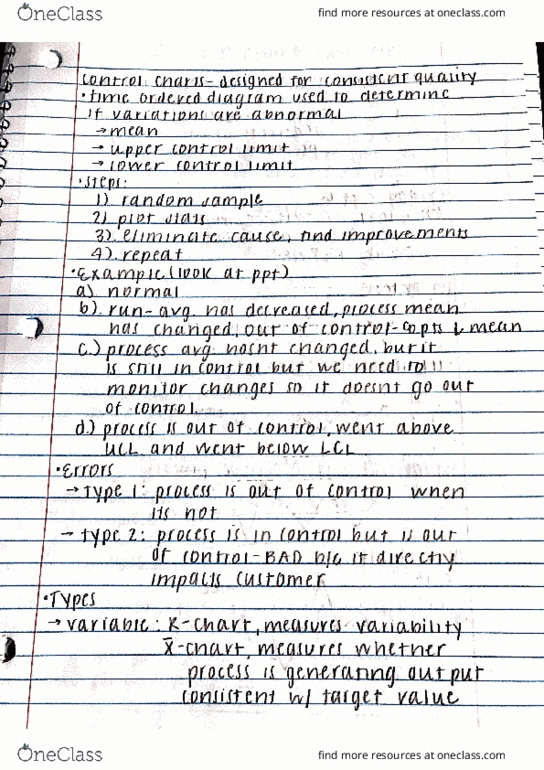 OneClass
find more resources at oneclass.com
control charts- designed for consistent quality
•time ordered diagram used to determine
if variations are abnormal
→mean
→upper control limit
→lower control limit
•Steps:
1) random sample
2) plot stats
3) eliminate cause, find improvements
4) repeat
•Example (look at ppt)
a) normal
b) run- avg. has decreased, process mean
has changed, out of control- pts ↓ mean
c.) process avg. hasnt changed, but it
is still in control but we need to
monitor changes so it doesnt go out
of control
d.) process is out of control, went above
UCL and went below LCL
•Errors
→Type 1: process is out of control when
its not
→ type 2: process is in control but is out
of control-BAD b/c it directly
impacts customer
•Types
→variable: R-chart, measures variability
x̄-chart, measures whether
process is generating output
consistent w/ target value
OneClass
find more resources at oneclass.com